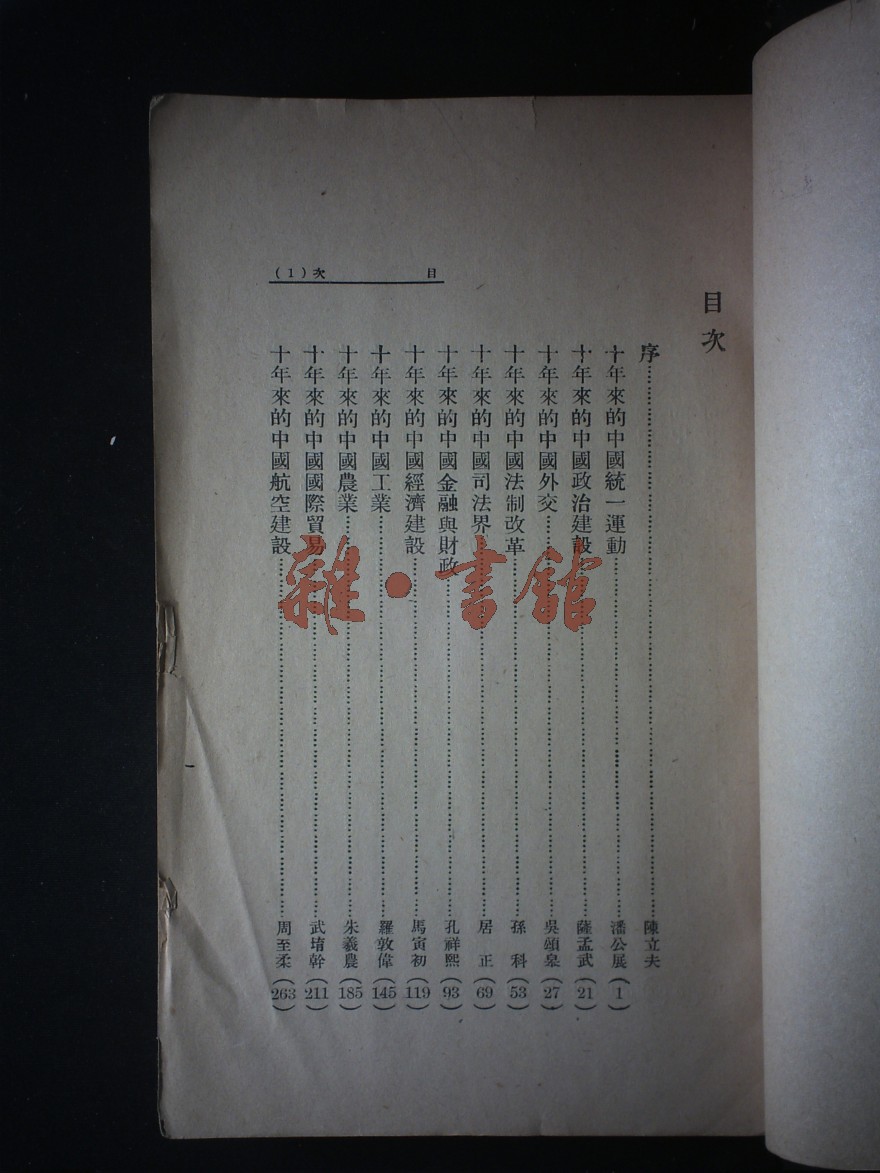 目次
序……陳立夫
十年來的中國統一運動……潘公展(1)
十年來的中國政治建設……薩孟武(21)
十年來的中國外交……吳頌臯(27)
十年來的中國法制改革……孫科(53)
十年來的中國司法界……居正(69)
十年來的中國金融與財政……孔祥熙(93)
十年來的中國經濟建設……馬寅初(119)
十年來的中國工業……羅敦偉(145)
十年來的中國農業……朱羲農(185)
十年來的中國國際貿易……武堉幹(211)
十年來的中國航空建設……周至柔(263)
(1)次 目
雜·書館